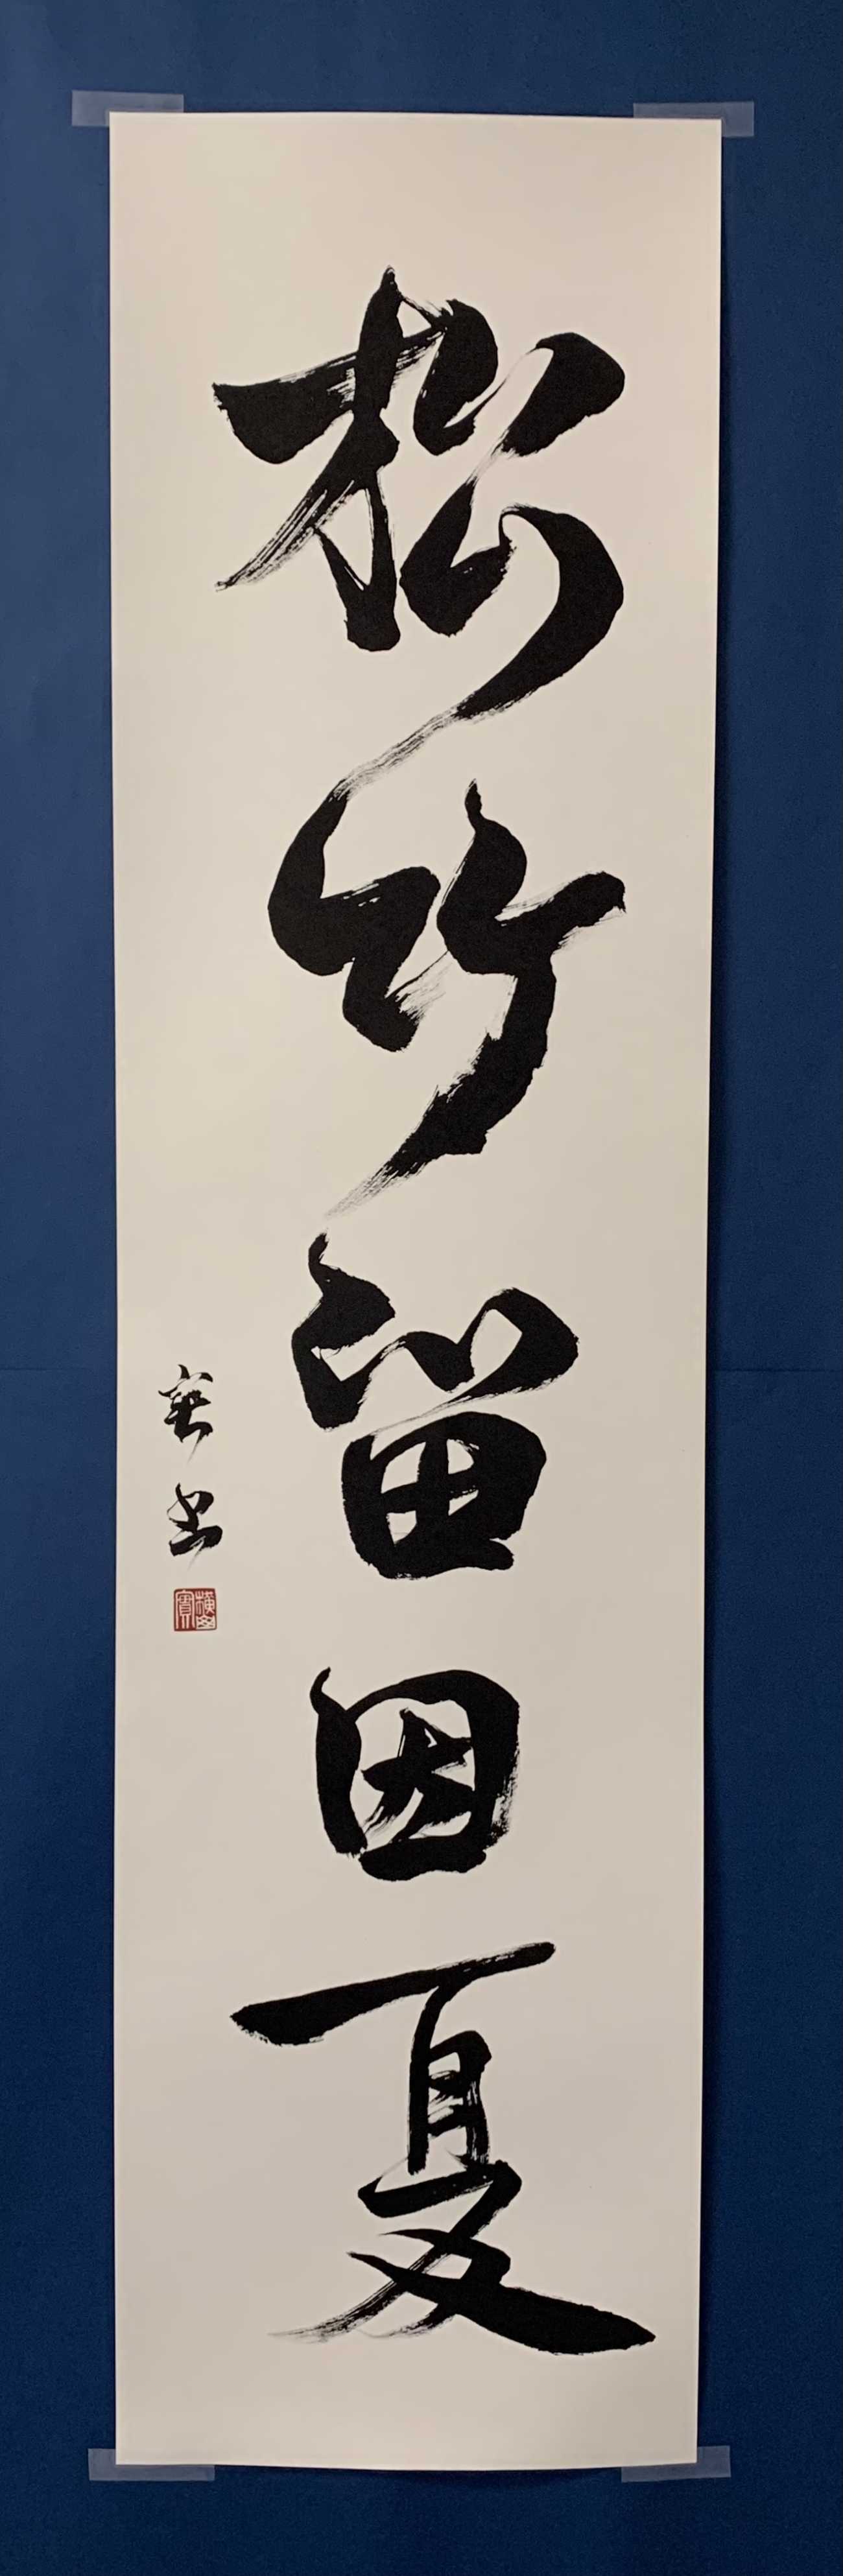 松竹留因夏